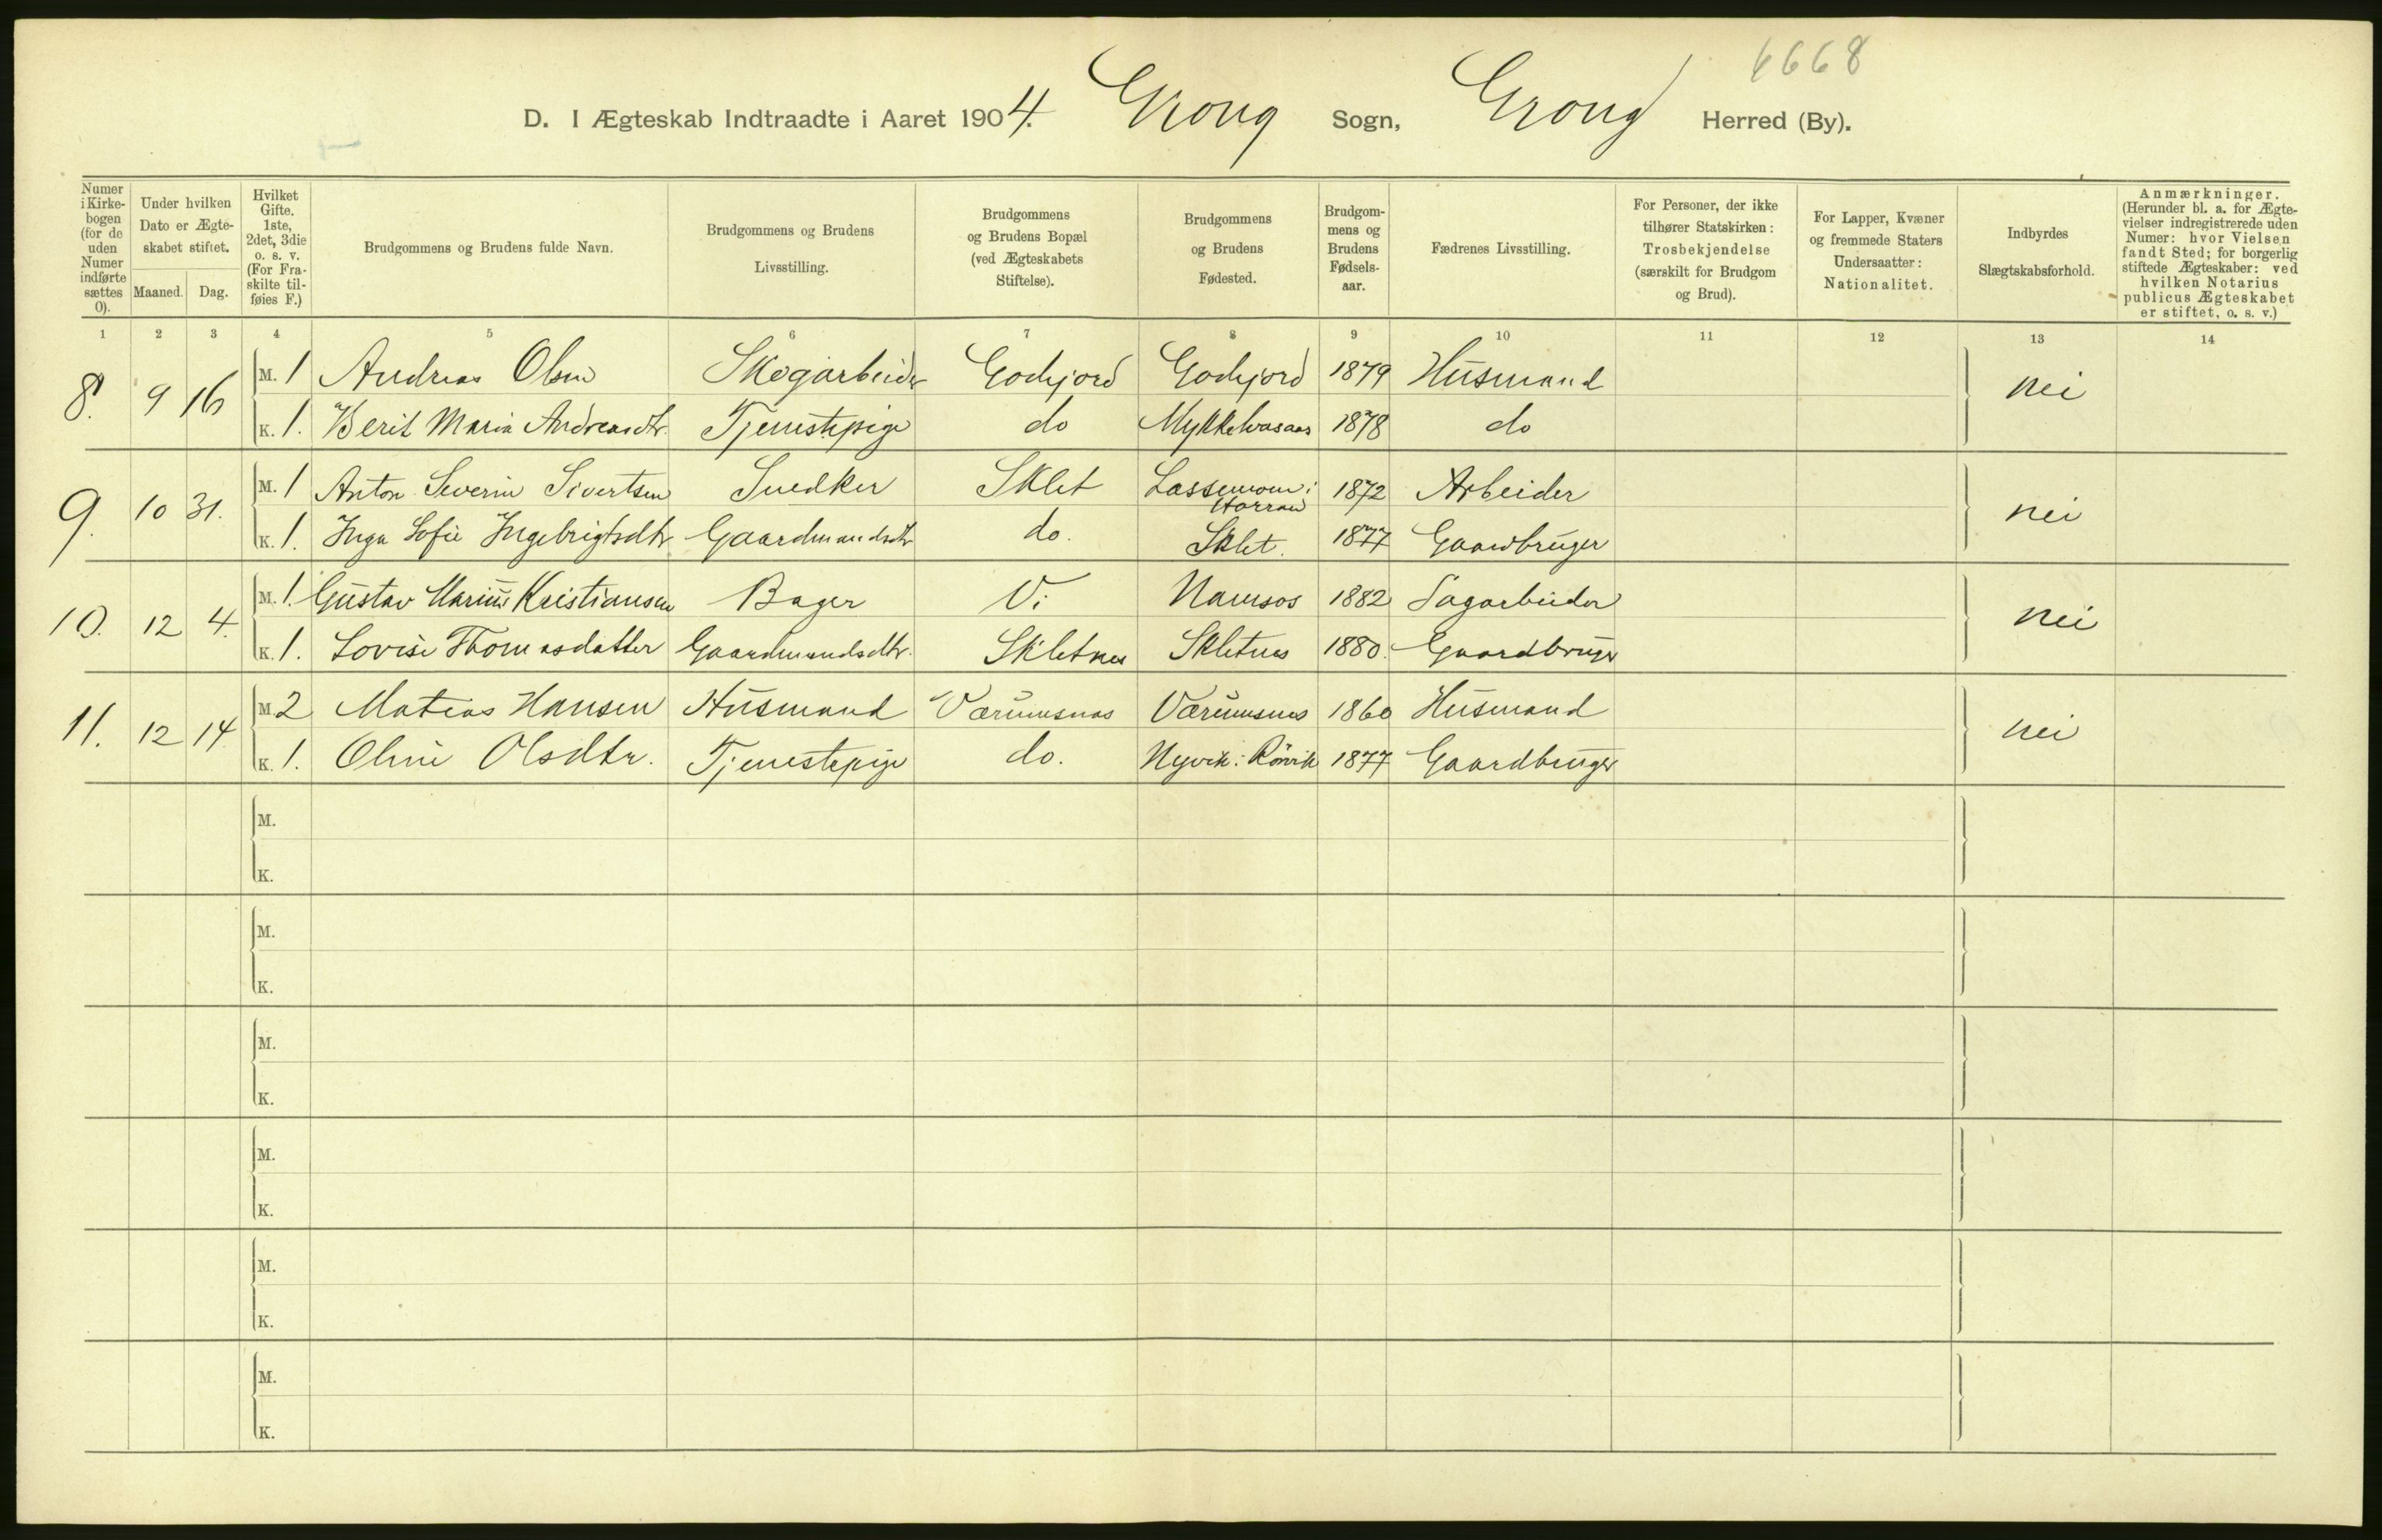 6668
D. I Ægteskab Indtraadte i Aaret 1904. Grong Sogn, Grong Herred (By).
Numer i Kirkebogen (for de uden Numer indførte sættes 0).
Under hvilken Dato er Ægteskabet stiftet.
Maaned. Dag.
Hvilket Gifte. 1ste, 2det, 3die o. s. v. (For Fraskilte tilføies F.)
Brudgommens og Brudens fulde Navn.
Brudgommens og Brudens Livsstilling.
Brudgommens og Brudens Bopæl (ved Ægteskabets Stiftelse).
Brudgommens og Brudens Fødested.
Brudgommens og Brudens Fødselsaar.
Fædrenes Livsstilling.
For Personer, der ikke tilhører Statskirken: Trosbekjendelse (særskilt for Brudgom og Brud).
For Lapper, Kvæner og fremmede Staters Undersaatter: Nationalitet.
Indbyrdes Slægtskabsforhold.
Anmærkninger. (Herunder bl. a. for Ægtevielser indregistrerede uden Numer: hvor Vielsen fandt Sted; for borgerlig stiftede Ægteskaber: ved hvilken Notarius publicus Ægteskabet er stiftet, o. s. v.)
1 2 3 4 5 6 7 8 9 10 11 12 13 14
8. 9 16 M. 1 Andreas Olsen Skogarbeider Godejord Godejord 1879 Husmand nei
K. 1. Berit Maria Andreasdtr. Tjenestepige do Mykkelvasaas 1878 do
9. 10 31. M. 1 Anton Severin Sivertsen Snedker Sklet Lassemoen i Harran 1872 Arbeider nei
K. 1. Inga Sofie Ingebrigtsdtr Gaardmandsdtr do. Sklet. 1877 Gaardbruger
10. 12 4. M. 1. Gustav Marius Kristiansen Bager Vi Namsos 1882 Sagarbeider nei
K. 1. Lovise Thomasdatter Gaardmandsdtr. Skletnes Skletnes 1880. Gaardbruger
11. 12 14 M. 2 Matias Hansen Husmand Værumsnes Værumsnes 1860 Husmand nei
K. 1. Oline Olsdtr. Tjenestepige do. Nyvik i Rörvik 1877 Gaardbruger
M.
K.
M.
K.
M.
K.
M.
K.
M.
K.
M.
K.